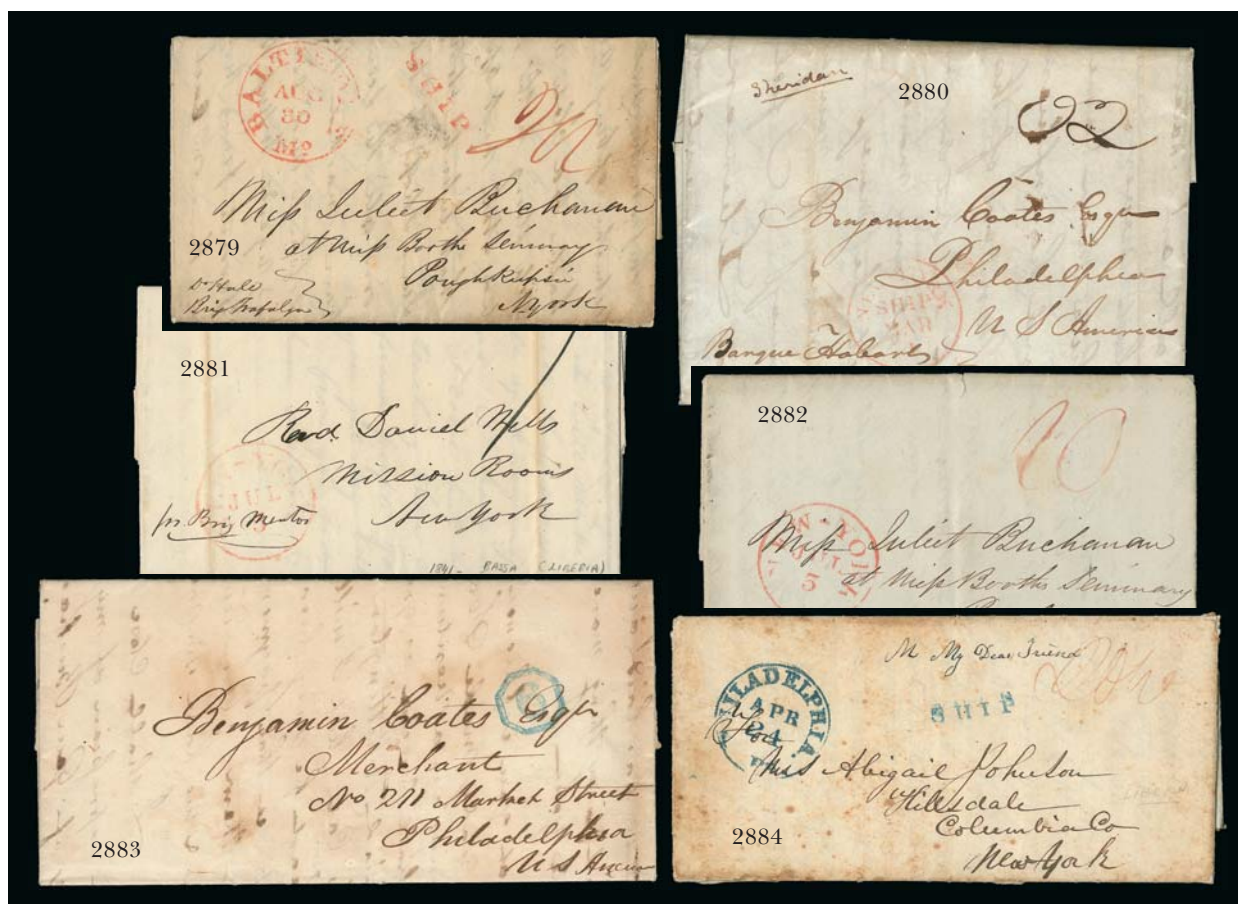 BALTIMORE
AUG
30
Md
SHIP
Miss Juliet Buchanan
at Miss Booths Seminary
Poughkeepsie
N York
2879
Dr Hale
Brig Trafalgar
Sheridan
2880
Benjamin Coates Esqr
Philadelphia
U S America
SHIP
MAR
Barque Hobart
2881
Revd. Daniel Wells
Mission Rooms
New York
JUL
3
pr Brig Mentor
1841- BASSA (LIBERIA)
2882
10
NEW-YORK
5
Miss Juliet Buchanan
at Miss Booths Seminary
6
Benjamin Coates Esqr
Merchant
No 271 Market Street
Philadelphia
U S America
2883
My Dear Friend
PHILADELPHIA
APR
24
SHIP
Miss Abigail Johnson
Hillsdale
Columbia Co
New York
2884